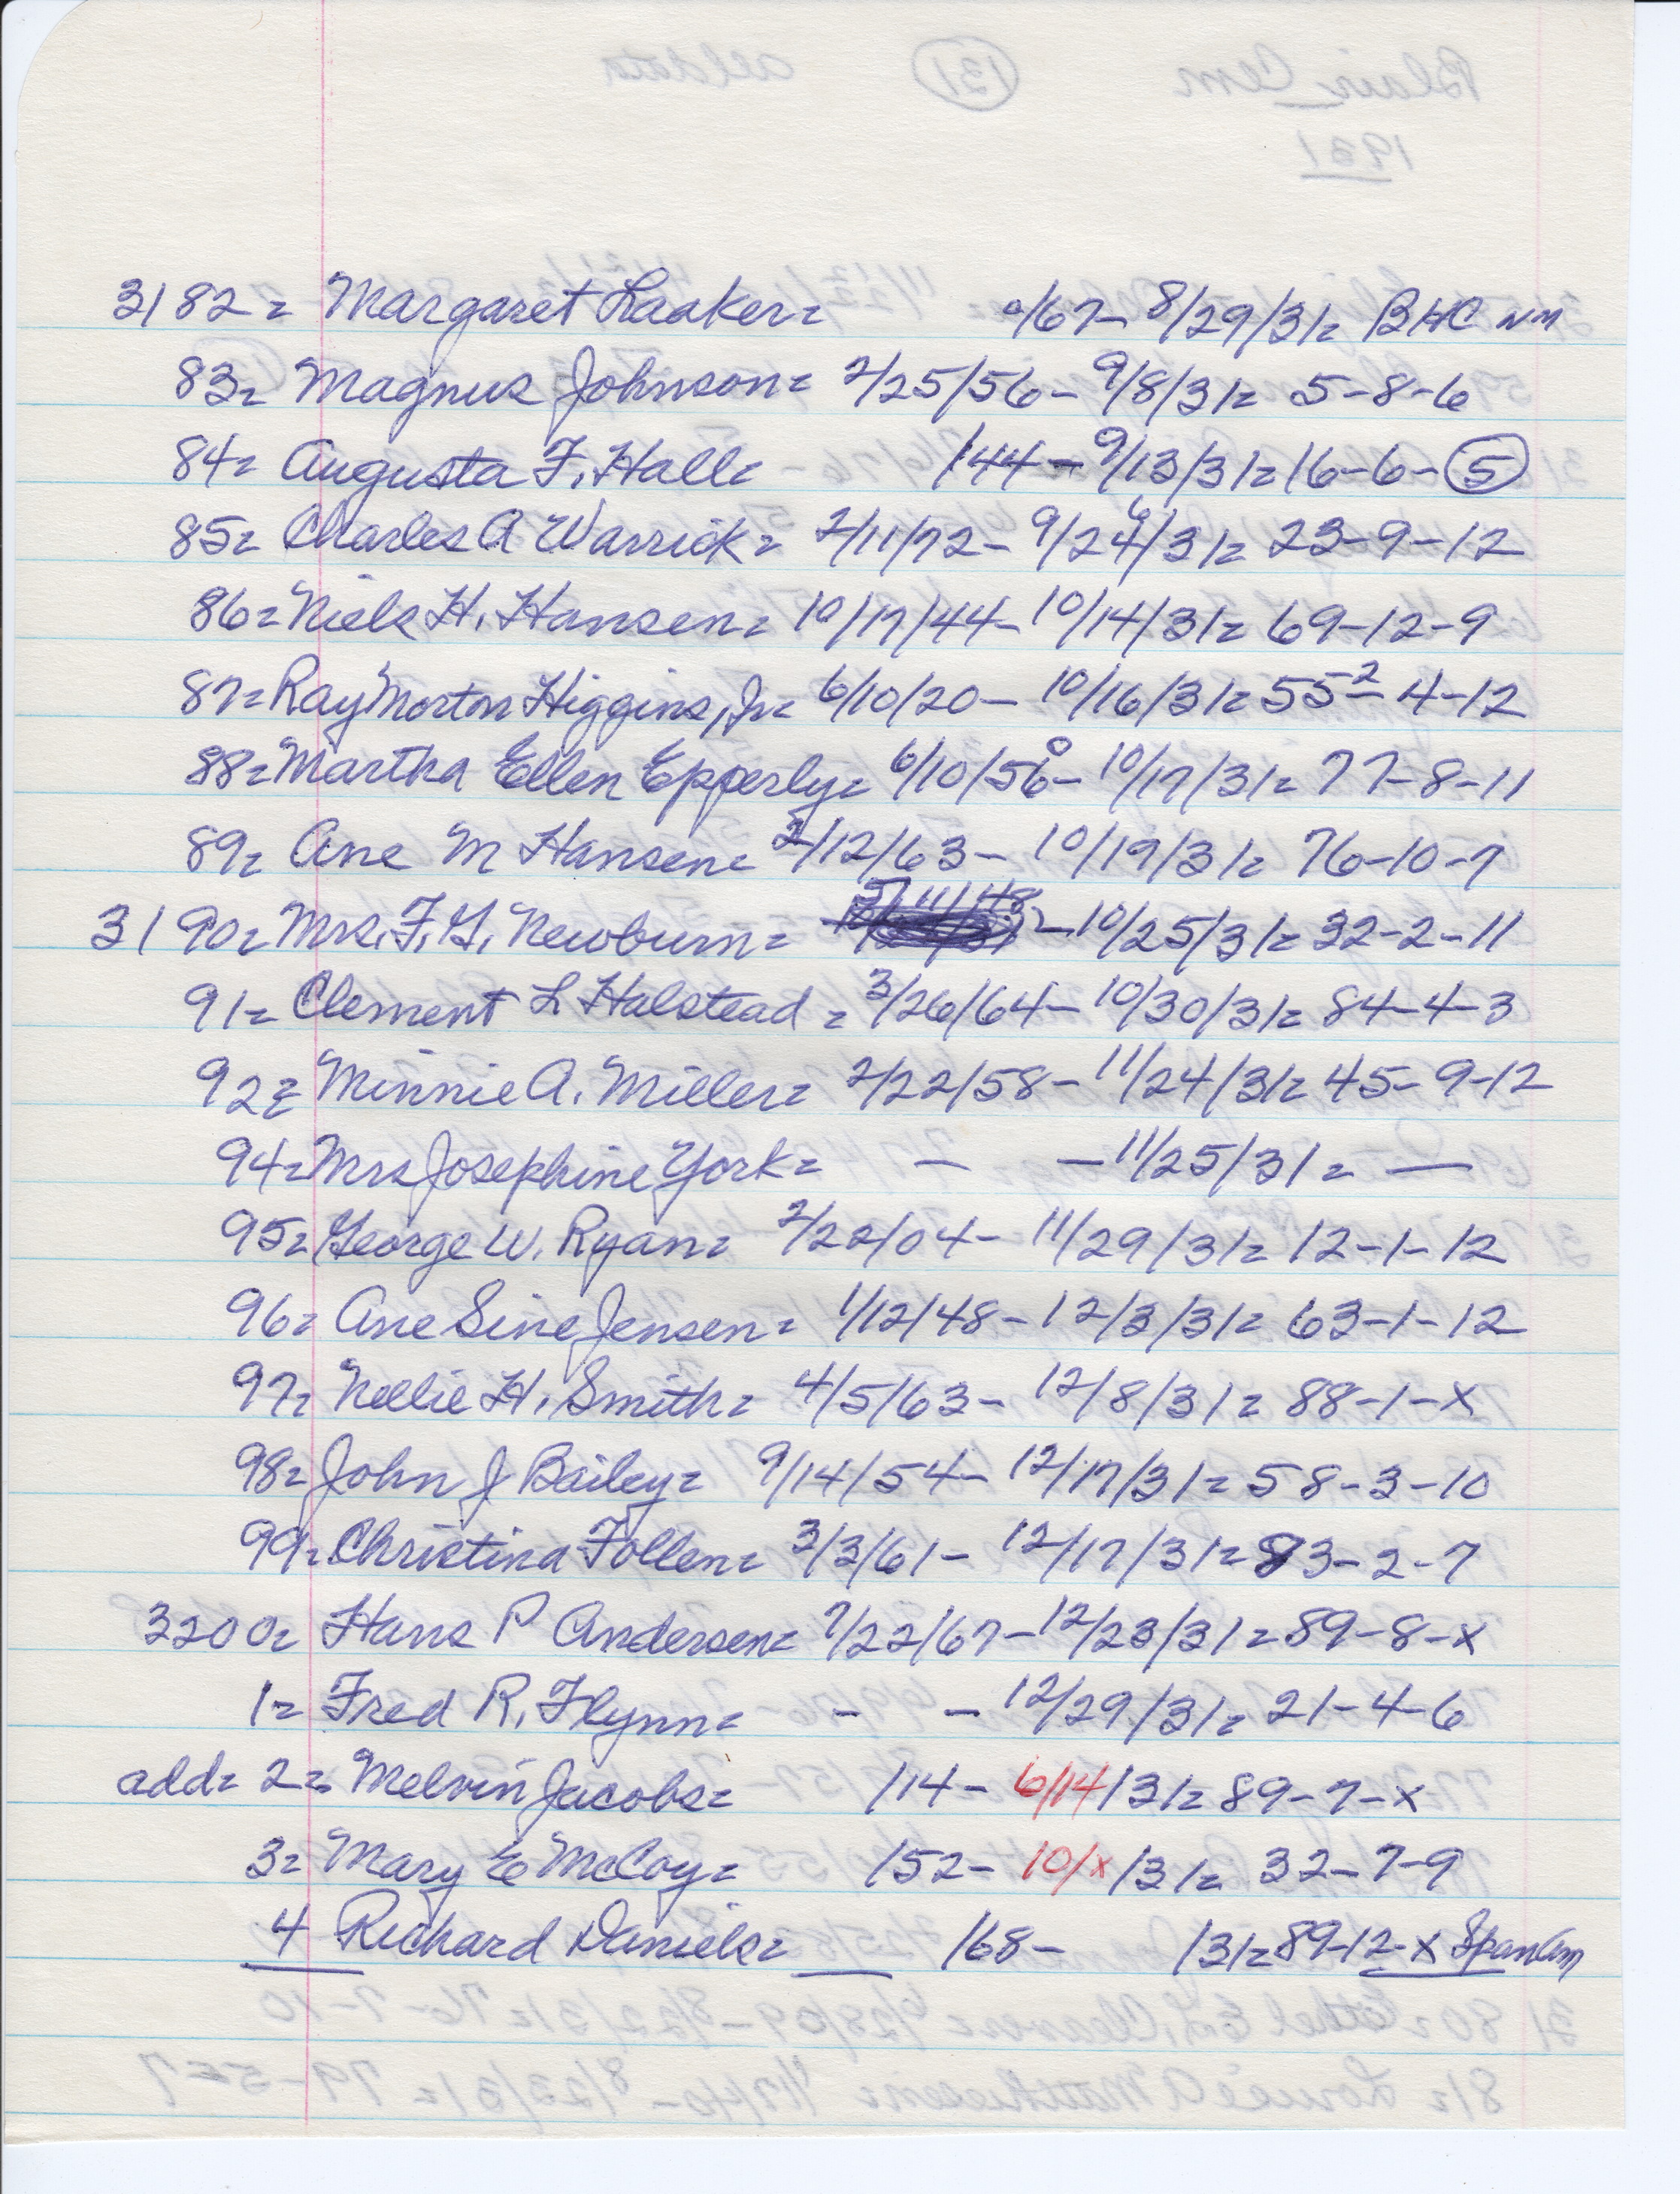 3182= Margaret Laaker= 0/67- 8/29/31= BHC NM
83= Magnus Johnson= 2/25/56- 9/8/31= 5-8-6
84= Augusta F. Hall= /44- 9/13/31= 16-6-5
85= Charles A Warrick= 2/11/72- 9/24/31= 23-9-12
86= Niels H. Hansen= 10/17/44- 10/14/31= 69-12-9
87= Ray Morton Higgins, Jr= 6/10/20- 10/16/31= 55 2- 4-12
88= Martha Ellen Epperly= 6/10/56- 10/17/31= 77-8-11
89= Ane M Hansen= 2/12/63- 10/19/31= 76-10-7
3190= Mrs. F. G. Newburn= 5/11/48 -10/25/31= 32-2-11
91= Clement L Halstead= 3/26/64- 10/30/31= 84-4-3
92= Minnie A. Miller= 2/22/58- 11/24/31= 45-9-12
94= Mrs Josephine York= - -11/25/31= -
95= George W. Ryan= 2/22/04- 11/29/31= 12-1-12
96= Ane Sine Jensen= 1/12/48- 12/3/31= 63-1-12
97= Nellie H. Smith= 4/5/63- 12/8/31= 88-1-x
98= John J Bailey= 9/14/54- 12/17/31= 58-3-10
99= Christina Follen= 3/3/61- 12/17/31= 83-2-7
3200= Hans P Andersen= 7/22/67- 12/23/31= 89-8-x
1= Fred R. Flynn= - - 12/29/31= 21-4-6
add= 2= Melvin Jacobs= /14- 6/14/31= 89-7-x
3= Mary E McCoy= /52- 10/x/31= 32-7-9
4 Richard Daniels= /68- /31= 89-12-x Span Am